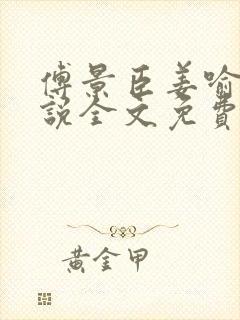 傅景臣姜喻
說全文免費
黃金甲